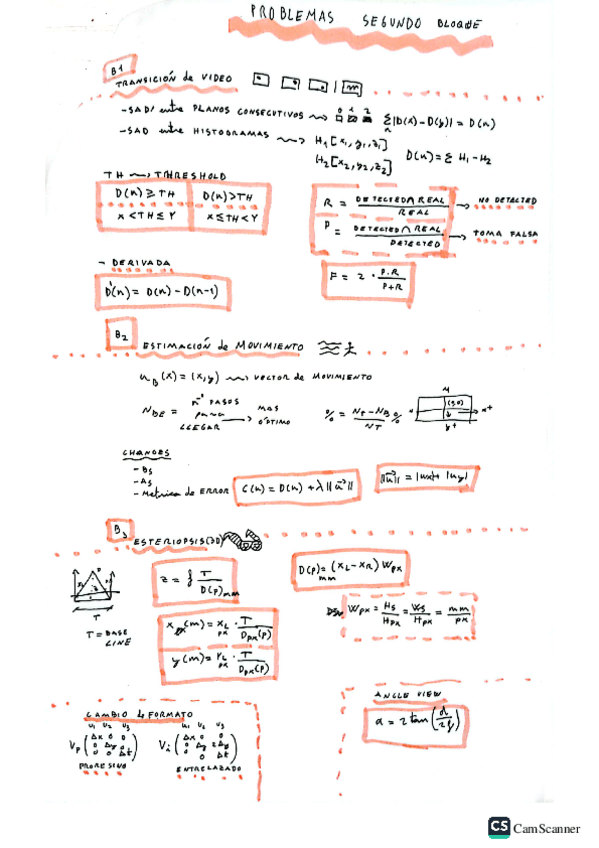 PROBLEMAS SEGUNDO BLOQUE
B1
TRANSICIÓN de VIDEO
-SAD/ entre PLANOS CONSECUTIVOS 0 1 2 Σ|D(x) - D(y)| = D(n)
n
-SAD entre HISTOGRAMAS H1[x1, y1, z1]
H2[x2, y2, z2] D(n) = Σ H1 - H2
TH THRESHOLD
D(n) ≥ TH D(n) > TH
x < TH ≤ Y x ≤ TH < Y
R = DETECTED ∩ REAL / REAL → NO DETECTED
P = DETECTED ∩ REAL / DETECTED → TOMA FALSA
- DERIVADA
D'(n) = D(n) - D(n-1)
F = 2 · P.R / P+R
B2
ESTIMACIÓN de MOVIMIENTO
uB(x) = (x,y) VECTOR de MOVIMIENTO
NBE = nº PASOS para LLEGAR → MAS ÓPTIMO
% = NT - NB / NT %
(0,0)
x+
y+
CHANGES
- BS
- AS
- Metrica de ERROR
C(u) = D(u) + λ||u||
||u|| = |ux| + |uy|
B3
ESTERIOPSIS(3D)
T
T = BASE LINE
z = f T / D(p)mm
D(p)mm = (xL - xR) Wpx
Wpx = Hs / Hpx = Ws / Hpx = mm / px
xpx(m) = xLpx · T / Dpx(p)
y(m) = YLpx · T / Dpx(p)
CAMBIO de FORMATO
V1 V2 V3
Vp (Δx 0 0
0 Δy 0
0 0 Δt)
PROGRESIVO
V1 V2 V3
Vi (Δx 0 0
0 Δy 2Δy
0 0 Δt)
ENTRELAZADO
ANGLE VIEW
α = 2 tan (d / 2f)
CS CamScanner